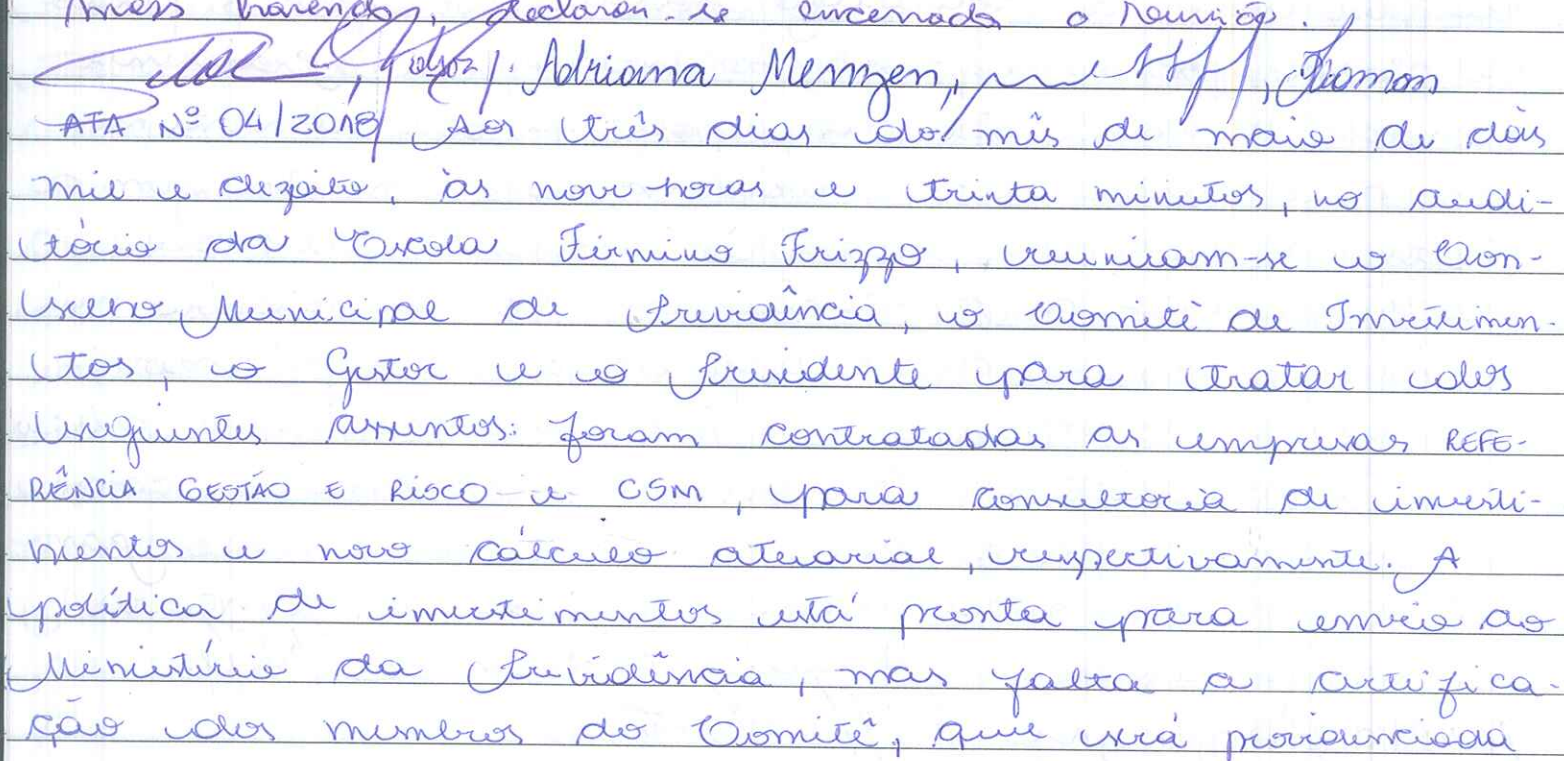 mais havendo, declarou-se encerrada a reunião.
Adriana Menzen,
ATA Nº 04/2018 Aos três dias do mês de maio de dois
mil e dezoito, às nove horas e trinta minutos, no audi-
tório da Escola Firmino Frizzo, reuniram-se o Con-
selho Municipal de Previdência, o Comitê de Investimen-
tos, o Gestor e o Presidente para tratar dos
seguintes assuntos: foram contratadas as empresas REFE-
RÊNCIA GESTÃO E RISCO e CSM, para consultoria de investi-
mentos e novo cálculo atuarial, respectivamente. A
política de investimentos está pronta para envio ao
Ministério da Previdência, mas falta a certifica-
ção dos membros do Comitê, que será providenciada